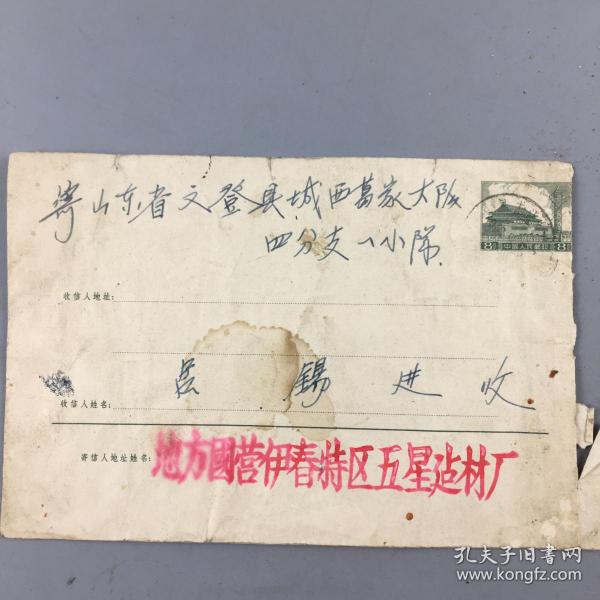 寄山东省文登县城西葛家大队
四分支一小队
8 中國人民郵政 8
收信人地址:
吕 锡 进 收
收信人姓名:
寄信人地址姓名:
地方國营伊春特区五星造材厂
孔夫子旧书网
www.kongfz.com